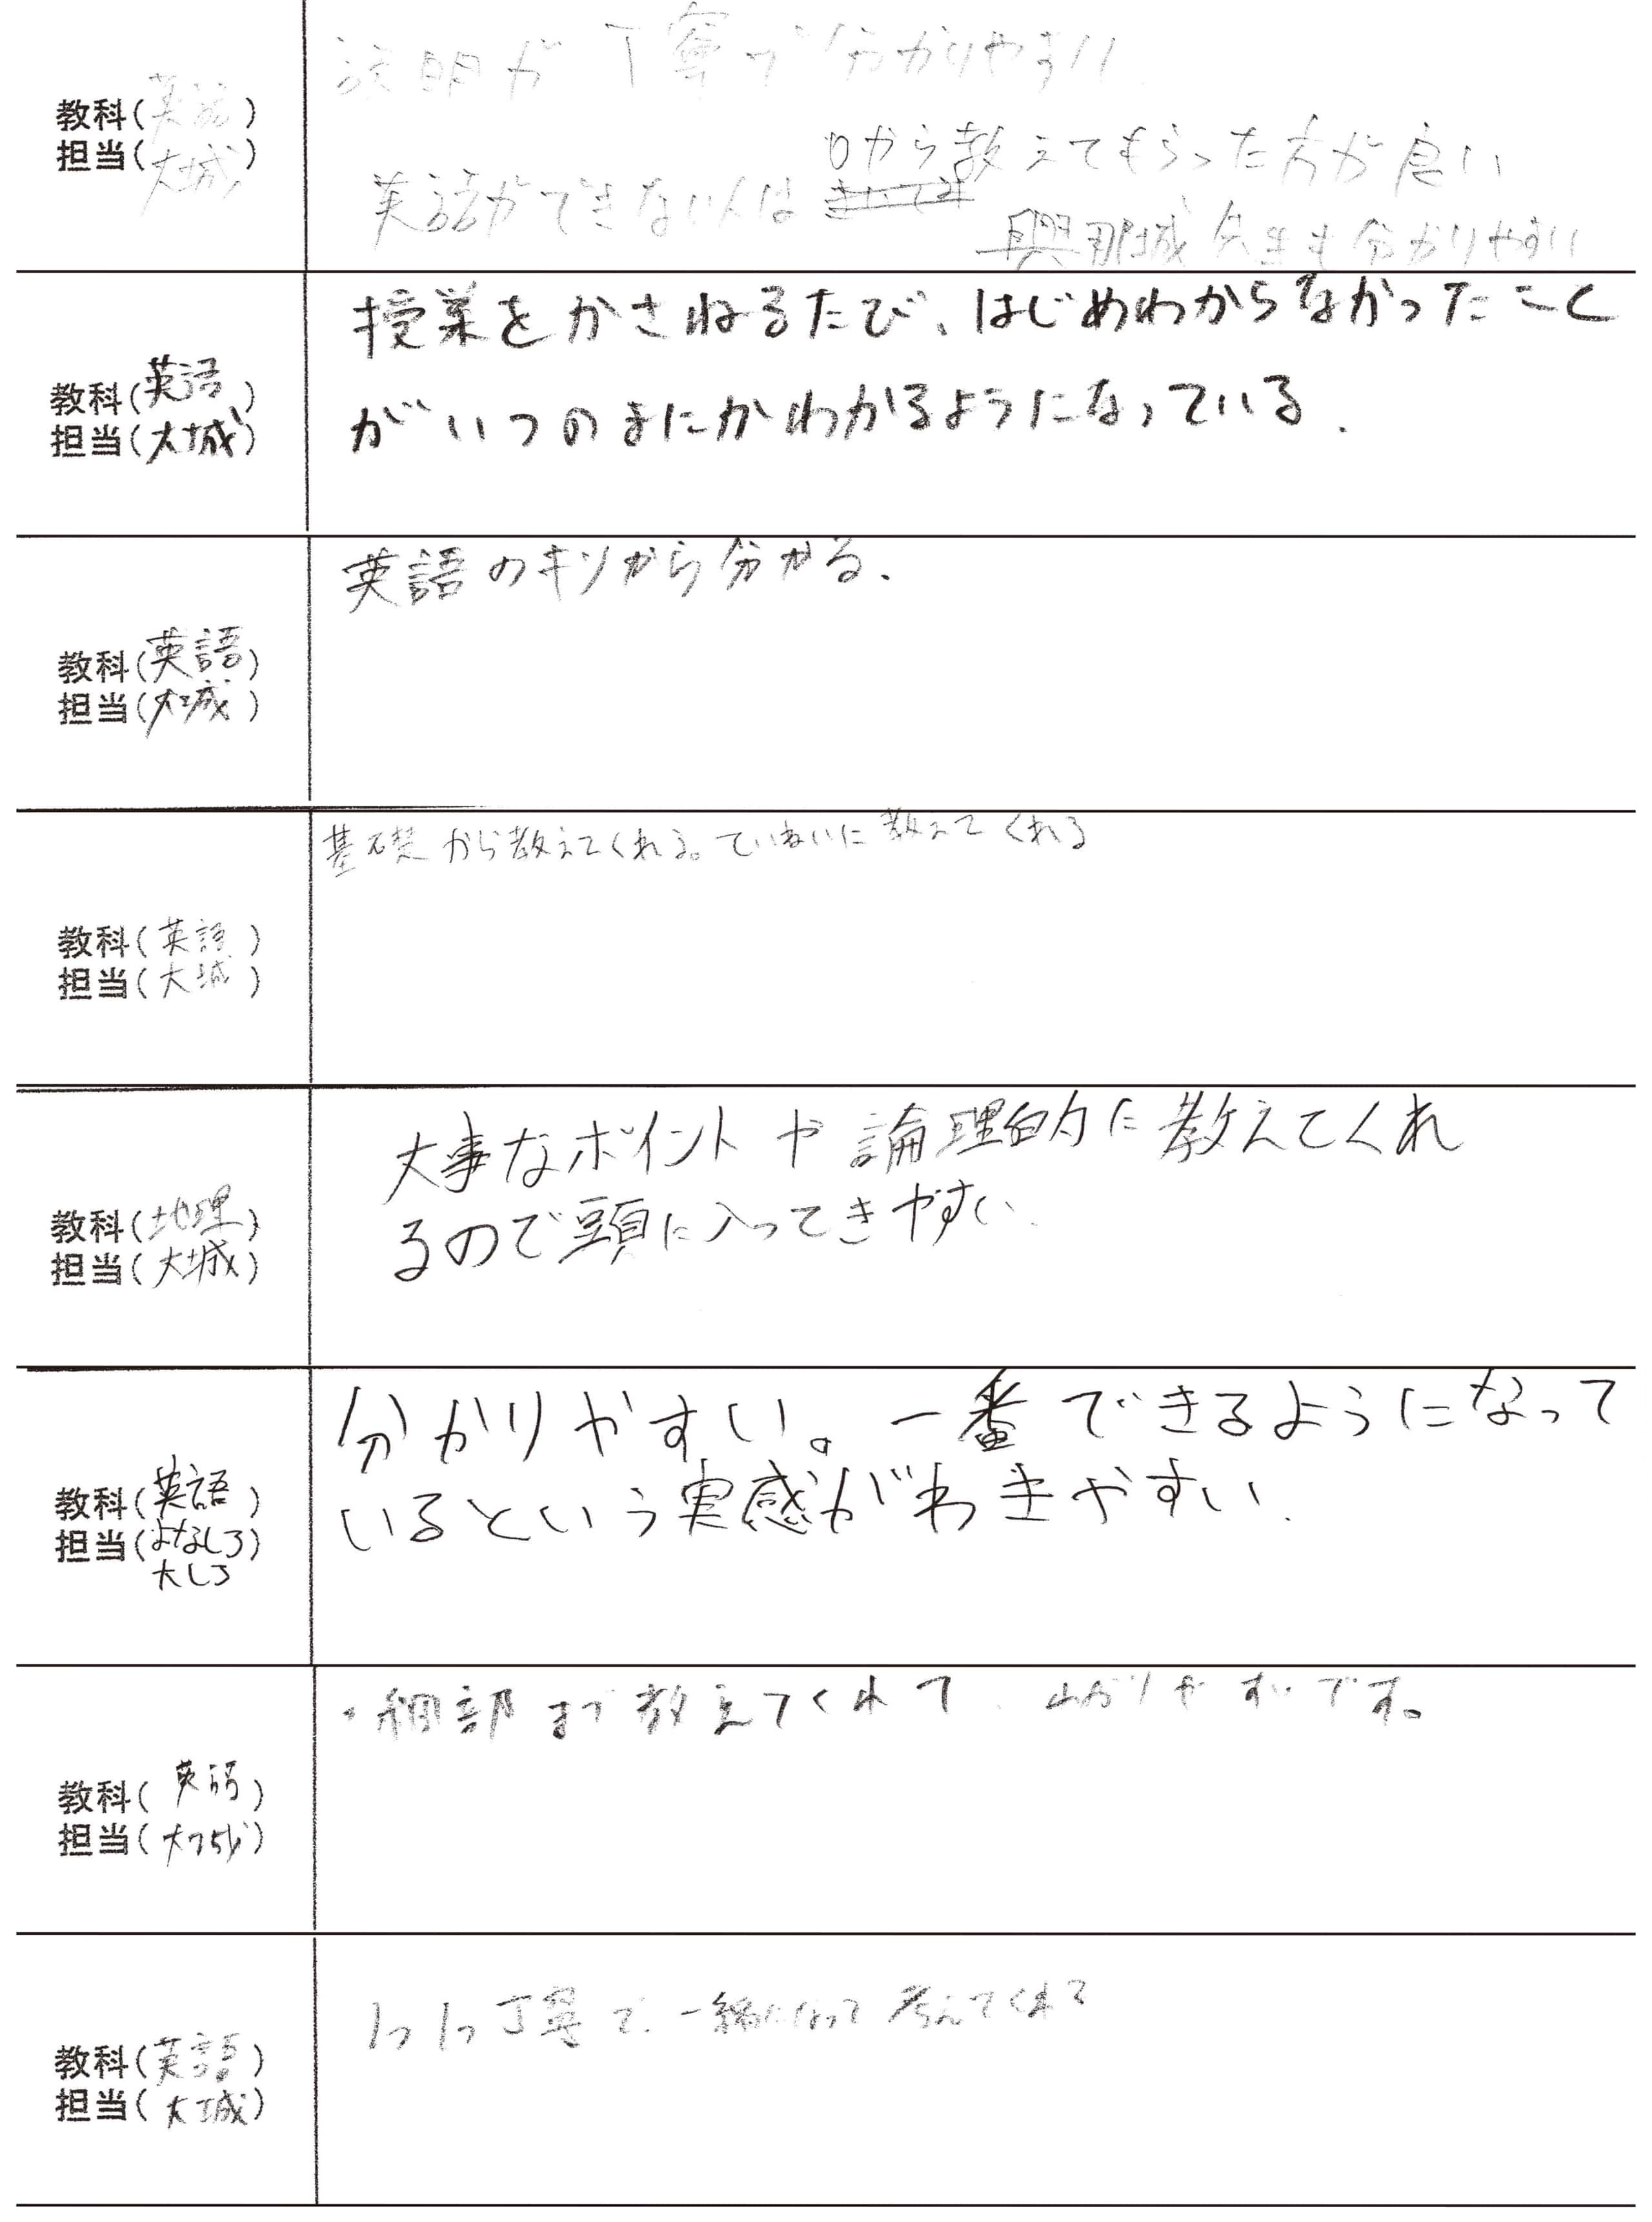 教科(英語)
担当(大城)
説明が丁寧で分かりやすい
0から教えてもらった方が良い
英語ができない人は
與那城先生も分かりやすい
教科(英語)
担当(大城)
授業をかさねるたび、はじめわからなかったこと
がいつのまにかわかるようになっている.
教科(英語)
担当(大城)
英語のキソから分かる.
教科(英語)
担当(大城)
基礎から教えてくれる。ていねいに教えてくれる
教科(地理)
担当(大城)
大事なポイントや論理的に教えてくれ
るので頭に入ってきやすい.
教科(英語)
担当(よなしろ)
大しろ
分かりやすい。一番できるようになって
いるという実感がわきやすい.
教科(英語)
担当(大城)
・細部まで教えてくれて、分かりやすいです。
教科(英語)
担当(大城)
1つ1つ丁寧で、一緒になって考えてくれる